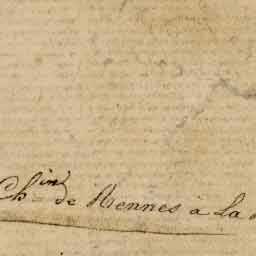 Ch.in de Rennes à La